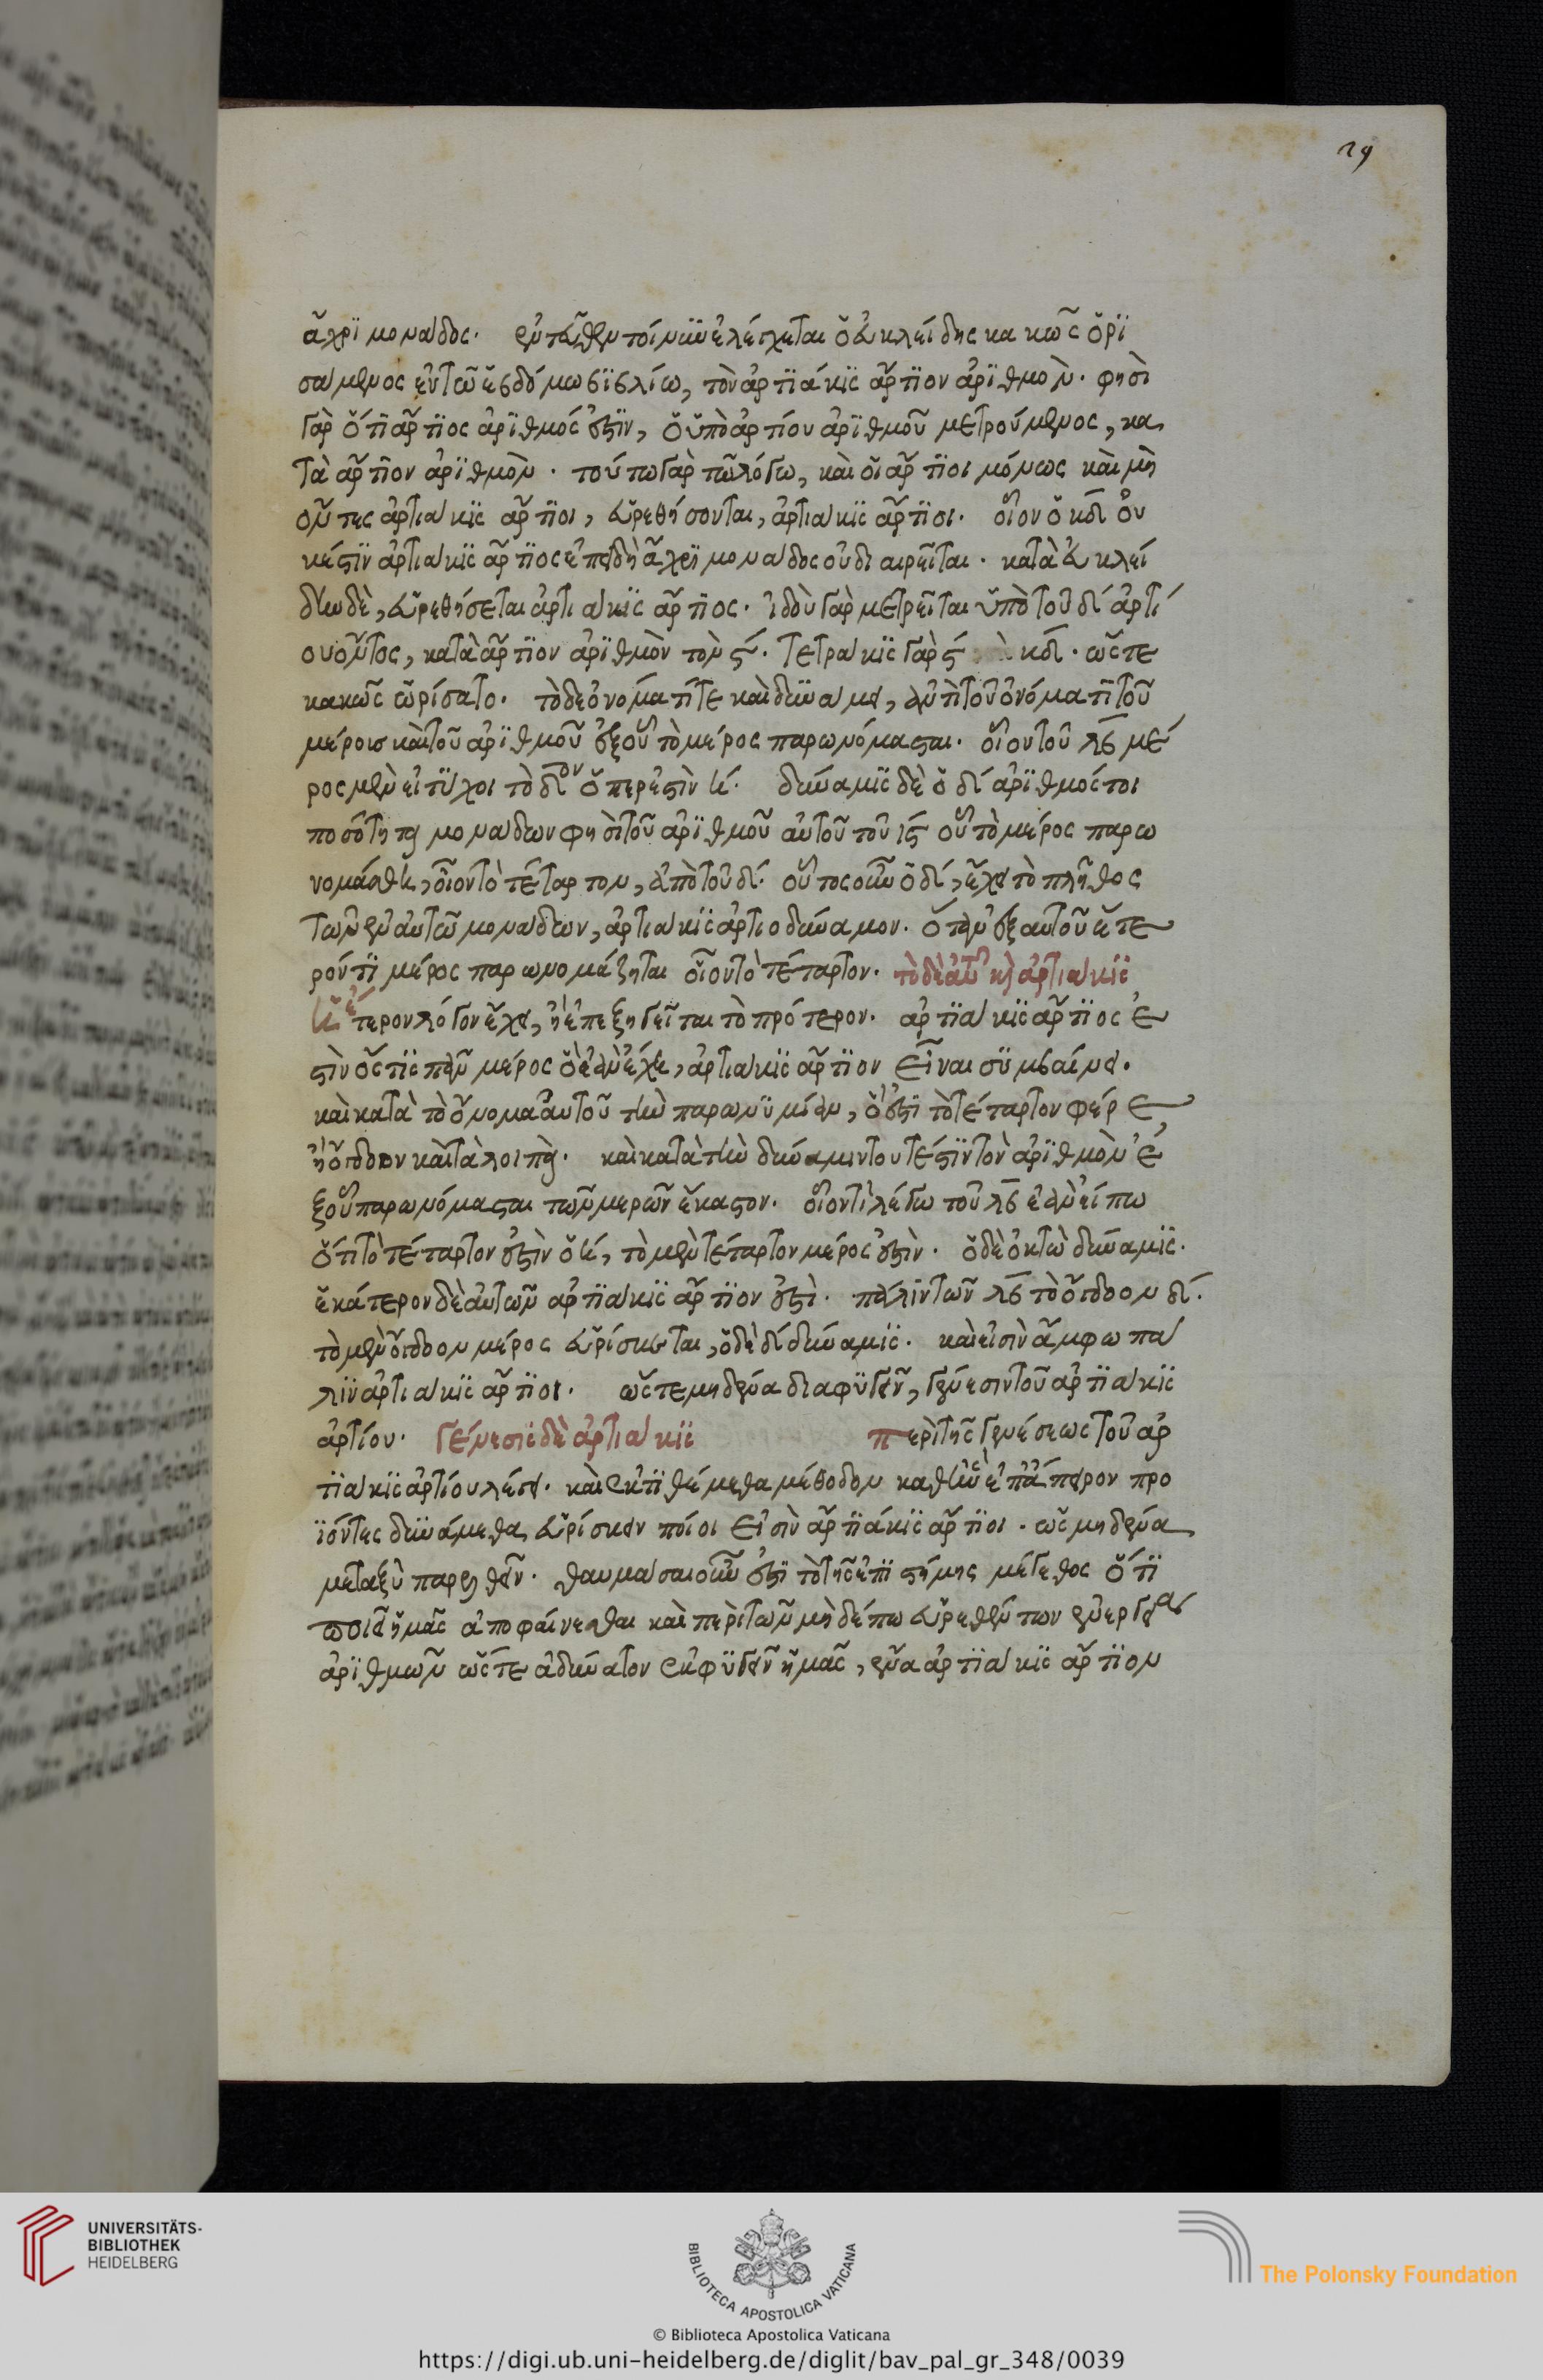 29
ἄχρι μονάδος. ἐνταῦθεν τοίνυν ἐλέγχεται ὁ εὐκλείδης κακῶς ὁρι
σάμενος ἐν τῶ ἑβδόμω βιβλίω, τὸν ἀρτιάκις ἄρτιον ἀριθμόν. φησὶ
γὰρ ὅτι ἄρτιος ἀριθμός ἐστιν, ὁ ὑπὸ ἀρτίου ἀριθμοῦ μετρούμενος, κα
τὰ ἄρτιον ἀριθμὸν. τούτω γὰρ τῶ λόγω, καὶ οἱ ἄρτιοι μόνως καὶ μὴ
ὄντες ἀρτιάκις ἄρτιοι, εὑρεθήσονται, ἀρτιάκις ἄρτιοι. οἷον ὁ κδ οὐ
κέστιν ἀρτιάκις ἄρτιος ἐπειδὴ ἄχρι μονάδος οὐ διαιρεῖται. κατὰ εὐκλεί
δην δὲ, εὑρεθήσεται ἀρτιάκις ἄρτιος. ἰδοὺ γὰρ μετρεῖται ὑπὸ τοῦ δ ἀρτί
ου ὄντος, κατὰ ἄρτιον ἀριθμὸν τὸν ς. τετράκις γὰρ ς κδ. ὥστε
κακῶς ὡρίσατο. τὸ δὲ ὀνόματί τε καὶ δυνάμει, ἀντὶ τοῦ ὀνόματι τοῦ
μέρους καὶ τοῦ ἀριθμοῦ ἐξ οὗ τὸ μέρος παρωνόμασται. οἷον τοῦ λβ μέ
ρος μὲν εἰ τύχοι τὸ δον ὅπερ ἐστὶν η. δύναμις δὲ ὁ δ ἀριθμός τοι
ποσότητα μονάδων φησὶ τοῦ ἀριθμοῦ αὐτοῦ τοῦ ις οὗ τὸ μέρος παρω
νομάσθη, οἷον τὸ τέταρτον, ἀπὸ τοῦ δ. οὗτος οὖν ὁ δ, ἔχει τὸ πλῆθος
τῶν ἐν αὐτῶ μονάδων, ἀρτιάκις ἀρτιοδύναμον. ὅταν ἐξ αὐτοῦ ἕτε
ρόν τι μέρος παρωνομάζηται οἷον τὸ τέταρτον. τὸ δὲ αὐτὸ καὶ ἀρτιάκις
ἕτερον λόγον ἔχει, ἢ ἐπεξηγεῖται τὸ πρότερον. ἀρτιάκις ἄρτιος ἐ
στὶν ὅστις πᾶν μέρος ὃ ἐὰν ἔχη, ἀρτιάκις ἄρτιον εἶναι συμβαίνει.
καὶ κατὰ τὸ ὄνομα αὐτοῦ τὴν παρωνυμίαν, ὅ ἐστι τὸ τέταρτον φέρε,
ἢ ὄγδοον καὶ τὰ λοιπά. καὶ κατὰ τὴν δύναμιν τουτέστιν τὸν ἀριθμὸν ἐ
ξ οὗ παρωνόμασται τῶν μερῶν ἕκαστον. οἷον τί λέγω τοῦ λβ ἐὰν εἴπω
ὅτι τὸ τέταρτον ἐστὶν ὁ η, τὸ μὲν τέταρτον μέρος ἐστὶν. ὁ δὲ ὀκτὼ δύναμις.
ἑκάτερον δὲ αὐτῶν ἀρτιάκις ἄρτιον ἐστὶ. πάλιν τῶν λβ τὸ ὄγδοον δ.
τὸ μὲν ὄγδοον μέρος εὑρίσκεται, ὁ δὲ δ δύναμις. καὶ εἰσὶν ἄμφω πά
λιν ἀρτιάκις ἄρτιοι. ὥστε μηδένα διαφυγεῖν, γένεσιν τοῦ ἀρτιάκις
ἀρτίου. γένεσις δὲ ἀρτιάκις περὶ τῆς γενέσεως τοῦ ἀρ
τιάκις ἀρτίου λέγει. καὶ ἐκτιθέμεθα μέθοδον καθ' ἣν ἐπ' ἄπειρον προ
ϊόντες δυνάμεθα εὑρίσκειν ποῖοι εἰσὶν ἀρτιάκις ἄρτιοι. ὡς μηδένα
μεταξὺ παρελθεῖν. θαυμάσαι οὖν ἐστι τὸ τῆς ἐπιστήμης μέγεθος ὅτι
ποιεῖ ἡμᾶς ἀποφαίνεσθαι καὶ περὶ τῶν μηδέπω εὑρεθέντων ἐνεργείας
ἀριθμῶν ὥστε ἀδύνατον ἐκφυγεῖν ἡμᾶς, ἕνα ἀρτιάκις ἄρτιον
UNIVERSITÄTS-
BIBLIOTHEK
HEIDELBERG
BIBLIOTECA APOSTOLICA VATICANA
The Polonsky Foundation
© Biblioteca Apostolica Vaticana
https://digi.ub.uni-heidelberg.de/diglit/bav_pal_gr_348/0039